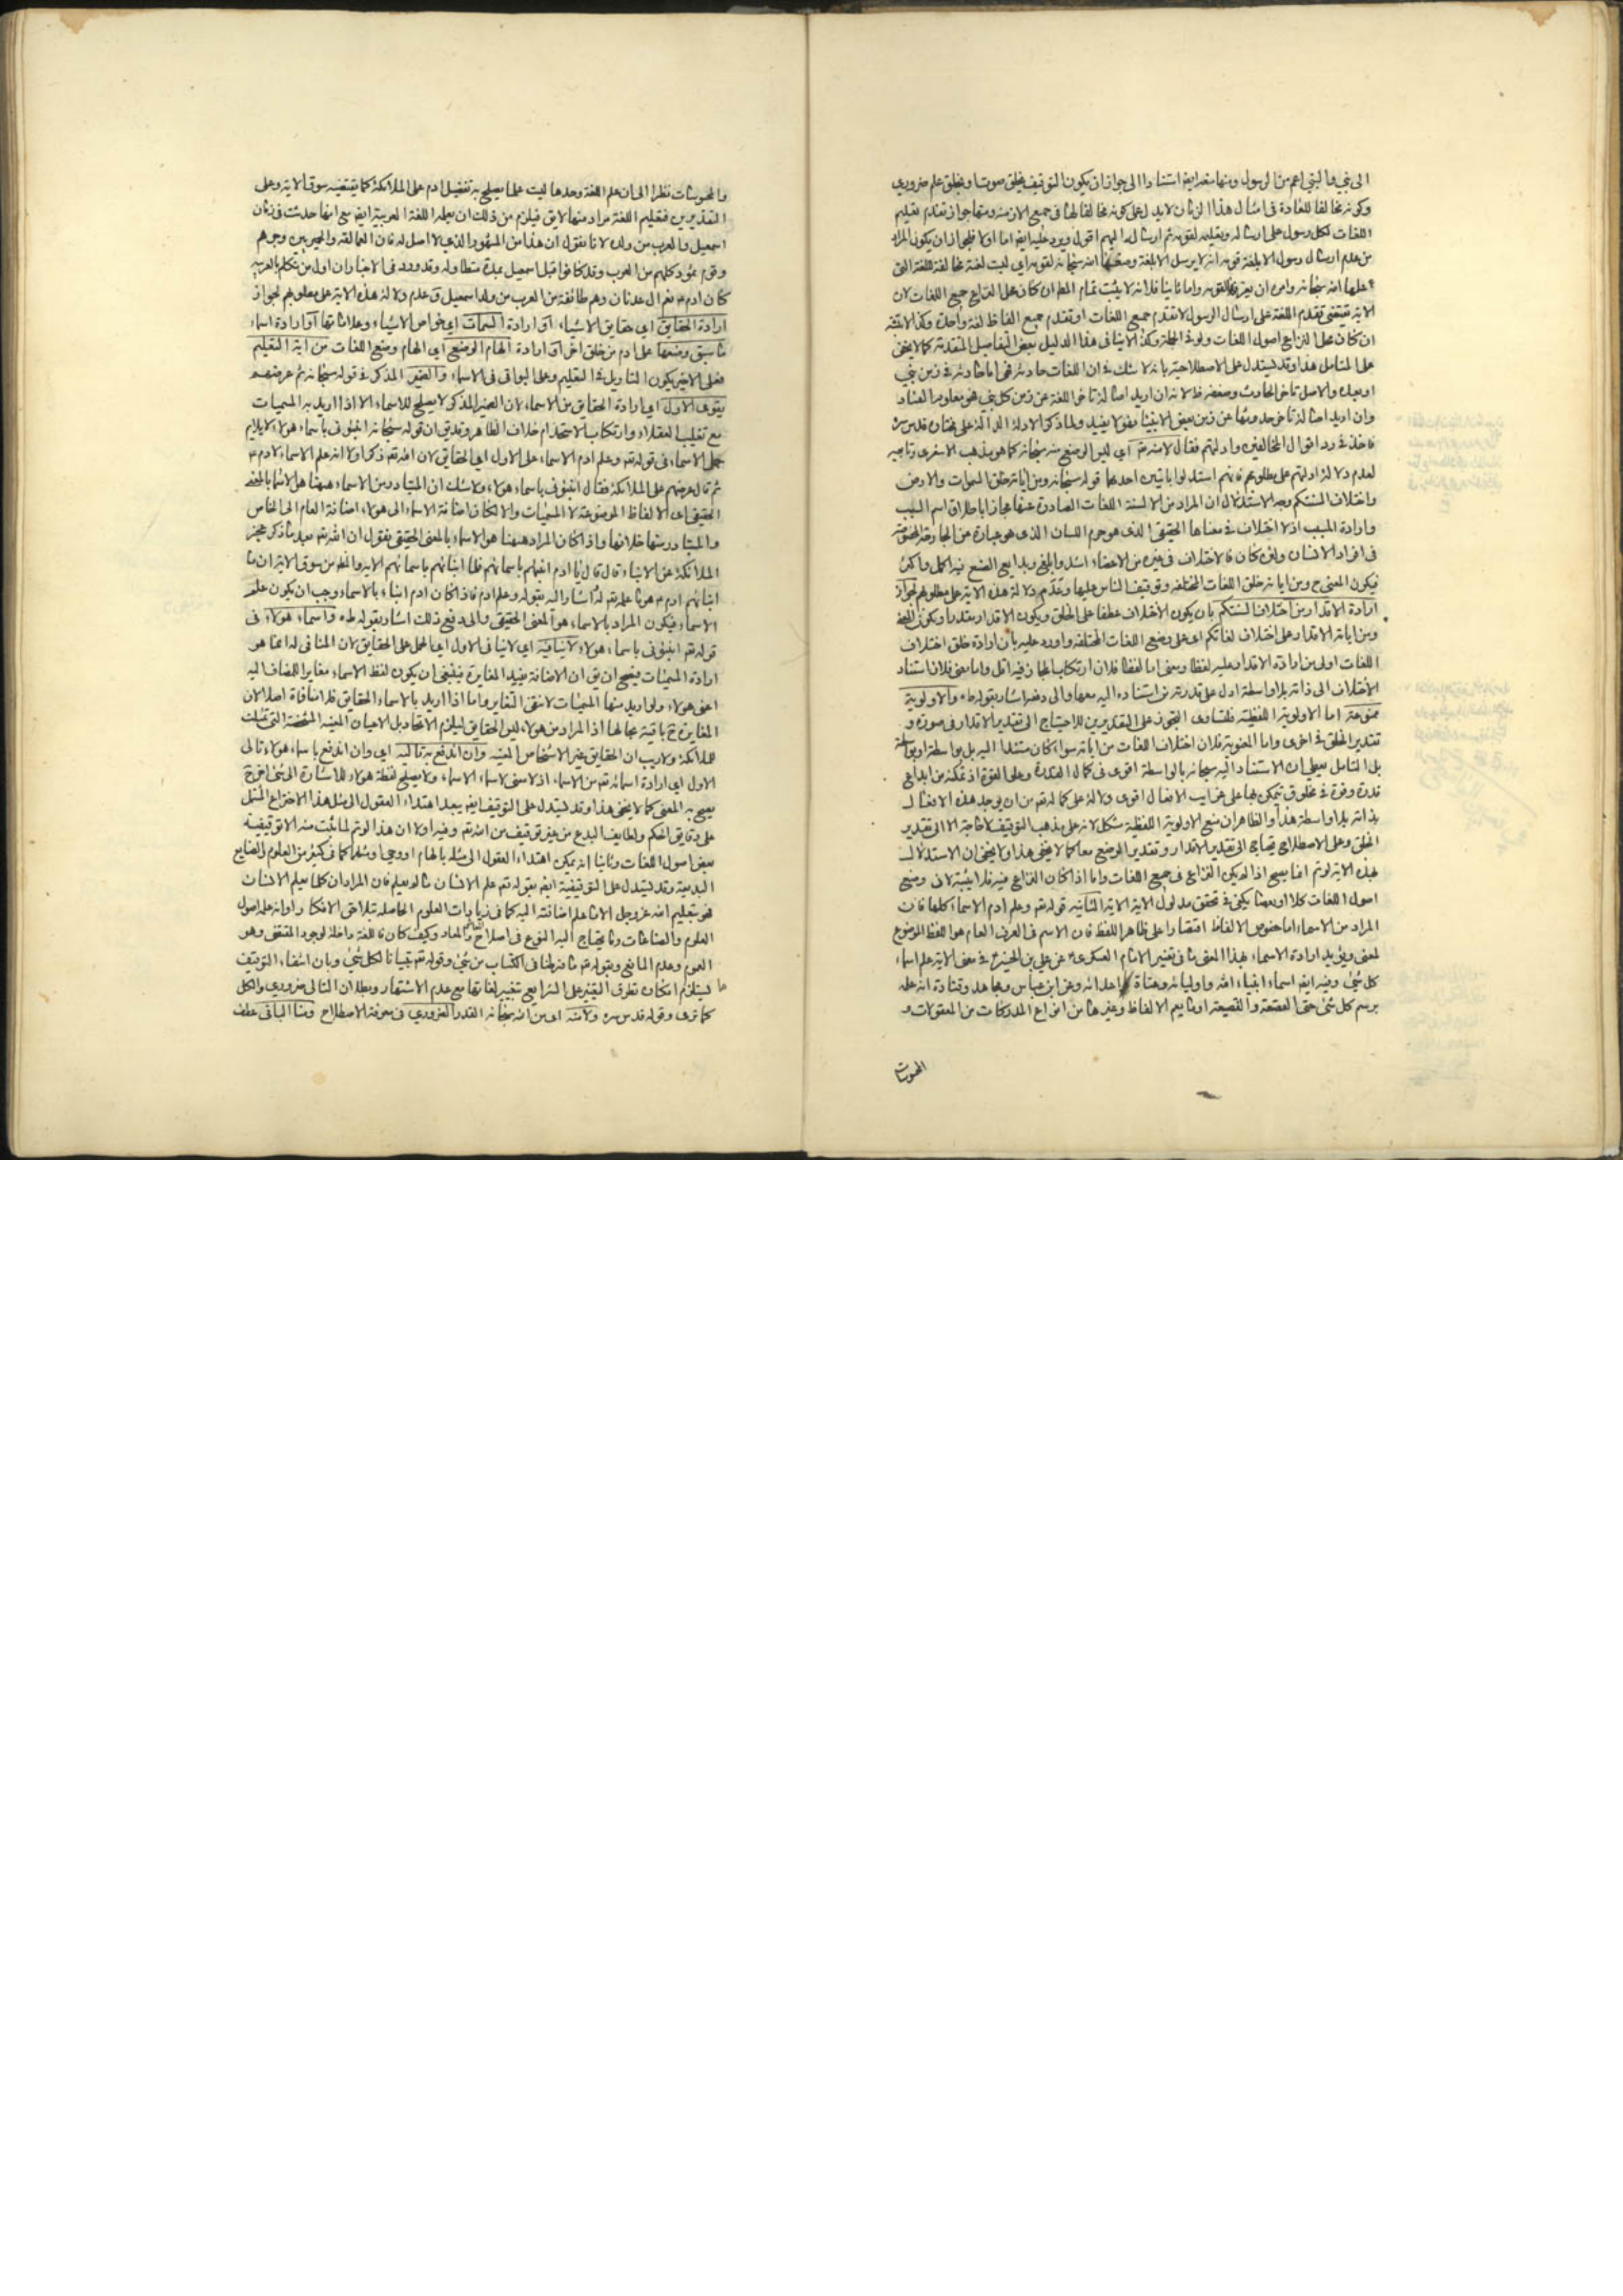 الى نبي والنبي اعم من الرسول ومنها منعه ايضا استنادا الى جواز ان يكون التوقيف بخلق صوت او بخلق علم ضروري
وكونه مخالفا للعادة في امثال هذا الزمان لا يدل على كونه مخالفا لها في جميع الازمنه ومنها جواز تقدم تعليم
اللغات لكل رسول على ارساله وتعليمه لقومه ثم ارساله اليهم اقول ويرد عليه ايضا اما اولا فلجواز ان يكون المراد
من عدم ارسال رسول الا بلغة قومه انه لا يرسل الا بلغة وضعها الله سبحانه لقومه اي ليست لغته مخالفة للغة التي
علمها الله سبحانه وامره ان يعرفها لقومه واما ثانيا فلانه لا يثبت تمام المط ان كان محل النزاع جميع اللغات لان
الاية تقتضي تقدم اللغة على ارسال الرسول لا تقدم جميع اللغات او تقدم جميع الفاظ لغة واحدة وكذا لا يتم
ان كان محل النزاع اصول اللغات ولو في الجملة وكذا الاتيان في هذا الدليل ببعض التفاصيل المتقدمة كما لا يخفى
على المتامل هذا وقد يستدل على الاصطلاحية بانه لا شك في ان اللغات حادثة فهي اما حادثة في زمن نبي
او بعده والاصل تاخر الحادث وضعفه ظ لانه ان اريد اصالة تاخر اللغة عن زمن كل نبي فهو معلوم الفساد
وان اريد اصالة تاخر حدوثها عن زمن بعض الانبيا فهو لا يفيد ولما ذكر الادلة الدالة على مختاره قدس سره
اخذ في رد اقوال المخالفين وادلتهم فقال لا منه تم اي ليس الوضع منه سبحانه كما هو مذهب الاشعري وتابعيه
لعدم دلالة ادلتهم على مطلوبهم فانهم استدلوا بايتين احدهما قوله سبحانه ومن اياته خلق السموات والارض
واختلاف السنتكم وجه الاستدلال ان المراد من الالسنة اللغات الصادرة عنها مجازا باطلاق اسم السبب
وارادة المسبب اذ لا اختلاف في معناها الحقيقي الذي هو جرم اللسان الذي هو عبارة عن الجارحة المخصوصة
في افراد الانسان ولو كان فالاختلاف في غيره من الاعضاء اشد وابلغ وبدايع الصنع فيه اكمل واكثر
فيكون المعنى ح ومن اياته خلق اللغات المختلفه وتوقيف الناس عليها وعدم دلالة هذه الاية على مطلوبهم لجواز
ارادة الاقدار من اختلاف السنتكم بان يكون الاختلاف عطفا على الخلق ويكون الاقدار مقدرا ويكون المعنى
ومن اياته الاقدار على اختلاف لغاتكم اي على وضع اللغات المختلفه واورد عليه بان ارادة خلق اختلاف
اللغات اولى من ارادة الاقدار عليه لفظا ومعنى اما لفظا فلان ارتكاب المجاز فيه اقل واما معنى فلان استناد
الاختلاف الى ذاته بلا واسطة ادل على قدرته من استناده اليه معها والى دفعه اشار بقوله طه والاولوية
ممنوعة اما الاولوية اللفظية فلتساوي التجوز على التقديرين للاحتياج الى تقدير الاقدار في صورة و
تقدير الخلق في اخرى واما المعنوية فلان اختلاف اللغات من اياته سواء كان مستندا اليه بلا واسطة او بواسطة
بل التامل يعطي ان الاستناد اليه سبحانه بالواسطة اقوى في كمال القدرة وعلو القوة اذ تمكنه من ابداع
قدرة وقوة في مخلوق يتمكن بها على غرايب الافعال اقوى دلالة على كماله تم من ان يوجد هذه الافعال
بذاته بلا واسطة هذا والظاهر ان منع الاولوية اللفظية مشكل لانه على مذهب التوقيف لا حاجة الا الى تقدير
الخلق وعلى الاصطلاح يحتاج الى تقدير الاقدار وتقدير الوضع معا كما لا يخفى هذا ولا يخفى ان الاستدلال
بهذه الاية لو تم انما يصح اذا لم يكن النزاع في جميع اللغات واما اذا كان النزاع فيه فلا يثبته لان وضع
اصول اللغات كلا او بعضا يكفي في تحقق مدلول الاية الاية الثانيه قوله تم وعلم ادم الاسماء كلها فان
المراد من الاسماء اما خصوص الالفاظ اقتصارا على ظاهر اللفظ فان الاسم في العرف العام هو اللفظ الموضوع
لمعنى ويؤيد ارادة الاسماء بهذا المعنى ما في تفسير الامام العسكري ع عن علي بن الحسين ع في معنى الاية علم اسماء
كل شئ وفيه ايضا اسماء انبياء الله واوليائه وعتاة اعدائه وعن ابن عباس ومجاهد وقتادة انه علمه
برسم كل شئ حتى القصعة والقصيعة او ما يعم الالفاظ وغيرها من انواع المدركات من المعقولات و
المحسوسات
والمحسوسات نظرا الى ان علم اللغة وحدها ليست مما يصلح به تفضيل ادم على الملائكة كما يقتضيه سوق الاية وعلى
التقديرين فتعليم اللغة مراد منها لا يق فيلزم من ذلك ان يعلم اللغة العربية ايضا مع انها حدثت في زمان
اسمعيل والعرب من ولده لانا نقول ان هذا من المشهور الذي لا اصل له فان العمالقه والحميريين وجرهم
وقوم ثمود كلهم من العرب وقد كانوا قبل اسمعيل بمدة متطاوله وقد ورد في الاخبار ان اول من تكلم بالعربيه
كان ادم ع نعم ال عدنان وهم طائفة من العرب من ولد اسمعيل ق عدم دلالة هذه الاية على مطلوبهم لجواز
ارادة الحقايق اي حقايق الاشياء او ارادة السمات اي خواص الاشياء وعلاماتها او ارادة اسماء
ما سبق وضعها على ادم من خلق اخر او ارادة الهام الوضع اي الهام وضع اللغات من اية التعليم
فعلى الاخير يكون التاويل في التعليم وعلى البواقي في الاسماء والضمير المذكر في قوله سبحانه ثم عرضهم
يقوي الاول اي ارادة الحقايق من الاسماء لان الضمير المذكر لا يصلح للاسماء الا اذا اريد به المسميات
مع تغليب العقلاء وارتكاب الاستخدام خلاف الظاهر وقد يق ان قوله سبحانه انبئوني باسماء هؤلاء لا يلايم
حمل الاسماء في قوله تم وعلم ادم الاسماء على الاول اي الحقايق لان الله تم ذكر اولا انه علم الاسماء لادم ع
ثم قال عرضهم على الملائكة فقال انبئوني باسماء هؤلاء ولا شك ان المتبادر من الاسماء ههنا هو الاسماء بالمعنى
الحقيقي اي الالفاظ الموضوعة لا المسميات والا لكان اضافة الاسماء الى هؤلاء اضافة العام الى الخاص
والمتبادر منها خلافها واذا كان المراد ههنا هو الاسماء بالمعنى الحقيقي نقول ان الله تم بعد ما ذكر عجز
الملائكة عن الانباء قال قال يا ادم انبئهم باسمائهم فلما انبائهم باسمائهم الاية والظ من سوق الاية ان ما
انبائهم ادم ع هو ما علمه تم له اشارا اليه بقوله وعلم ادم فاذا كان ادم انباء بالاسماء وجب ان يكون علم
الاسماء فيكون المراد بالاسماء هو المعنى الحقيقي والى دفع ذلك اشار بقوله طه واسماء هؤلاء في
قوله تم انبئوني باسماء هؤلاء لا ينافيه اي لا ينافي الاول اي الحمل على الحقايق لان المنافي له انما هو
ارادة المسميات فيصح ان يق ان الاضافة يفيد المغايرة فينبغي ان يكون لفظ الاسماء مغايرا للمضاف اليه
اعني هؤلاء ولو اريد منها المسميات لانتفى التغاير واما اذا اريد بالاسماء الحقايق فلا منافاة اصلا لان
المغايرة ح باقية بحالها اذ المراد من هؤلاء ليس الحقايق ليلزم الاتحاد بل الاعيان المعينه المشخصة التي تمثلت
للملائكة ولا ريب ان الحقايق غير الاشخاص المعينه وان اندفع به تاليه اي وان اندفع باسماء هؤلاء تالى
الاول اي ارادة اسمائه تم من الاسماء اذ لا معنى لاسماء الاسماء ولا يصلح لفظة هؤلاء للاشارة الى شئ اخر ح
يصح به المعنى كما لا يخفى هذا وقد يستدل على التوقيف ايضا ببعد اهتداء العقول الى مثل هذا الاختراع المشتمل
على دقايق الحكم ولطايف البدع من غير توقيف من الله تم وفيه اولا ان هذا لو تم لما يثبت منه الا توقيفية
بعض اصول اللغات وثانيا انه يمكن اهتداء العقول الى مثله بالهام او وحي او نحوهما كما في كثير من العلوم والصنايع
البديعة وقد يستدل على التوقيفية ايضا بقوله تم علم الانسان ما لم يعلم فان المراد ان كلما يعلم الانسان
فهو بتعليم الله عز وجل الا ما علم اضافته اليه كما في زيادات العلوم الحاصله بتلاحق الافكار وانه علمه اصول
العلوم والصناعات وما يحتاج اليه النوع في اصلاح المعاش والمعاد وكيف كان فاللغة داخلة لوجود المقتضى وهو
العموم وعدم المانع وبقوله تم ما فرطنا في الكتاب من شئ وقوله تم تبيانا لكل شئ وبان انتفاء التوقيف
يستلزم امكان تطرق التغير على الشرايع بتغيير لغاتها مع عدم الاشتهار وبطلان التالى ضروري والكل
كما ترى وقوله قدس سره ولا منه اي من الله سبحانه القدر الضروري في معرفة الاصطلاح ومنا الباقي عطف